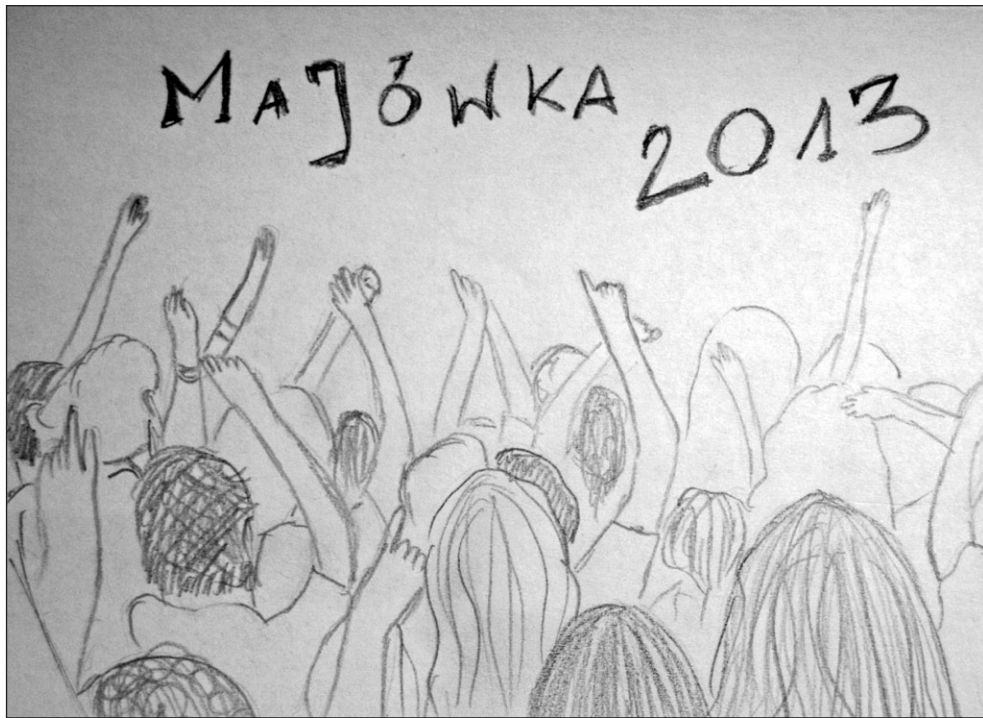 MAJÓWKA
2013